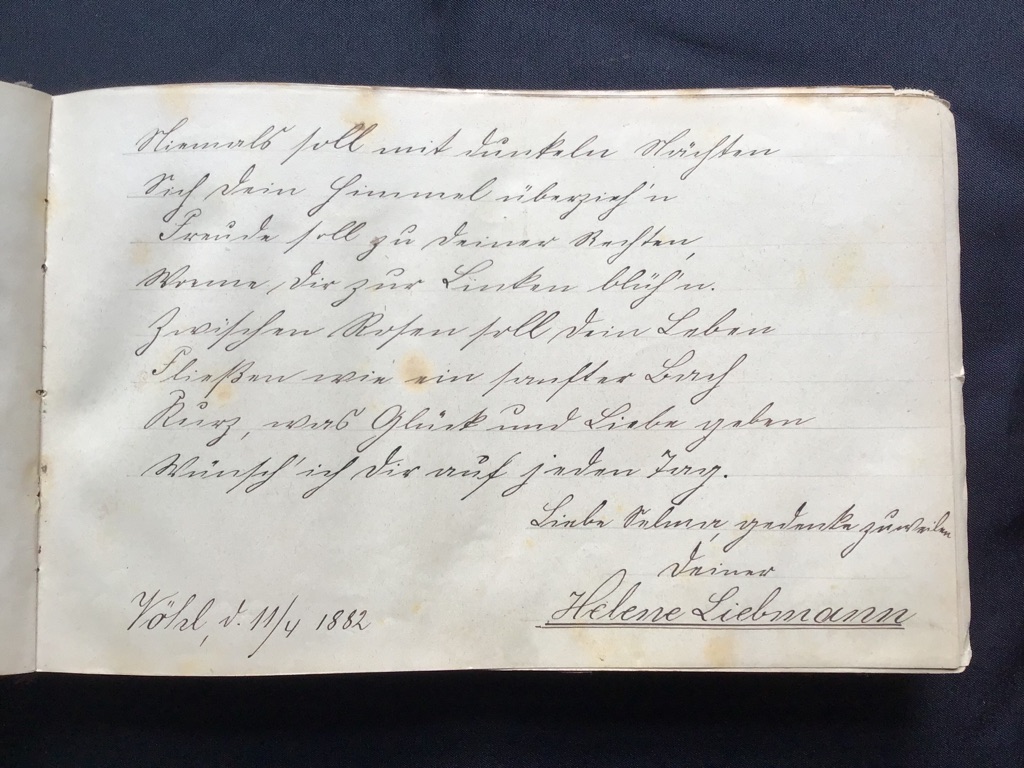 Niemals soll mit dunkeln Nächten
Sich dein Himmel überzieh'n
Freude soll zu deiner Rechten,
Wonne, dir zur Linken blüh'n.
Zwischen Rosen soll dein Leben
Fließen wie ein sanfter Bach
Kurz, was Glück und Liebe geben
Wünsch' ich dir auf jeden Tag.
Liebe Selma, gedenke zuweilen
deiner
Helene Liebmann
Vöhl, d. 11/4 1882